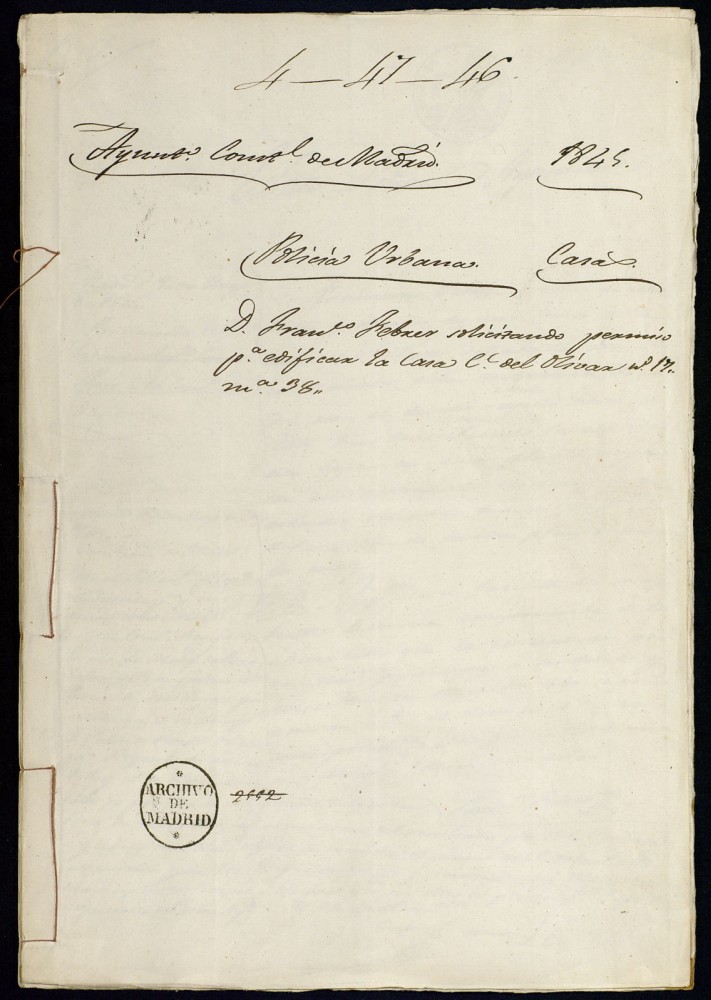 4 — 47 — 46.
Ayunto. Constl. de Madrid. 1845.
Policía Urbana. Casas.
D. Franco. Febrer solicitando permiso
pa. edificar la Casa Ce. del Olivar no. 17.
ma. 38,,
ARCHIVO
DE
MADRID